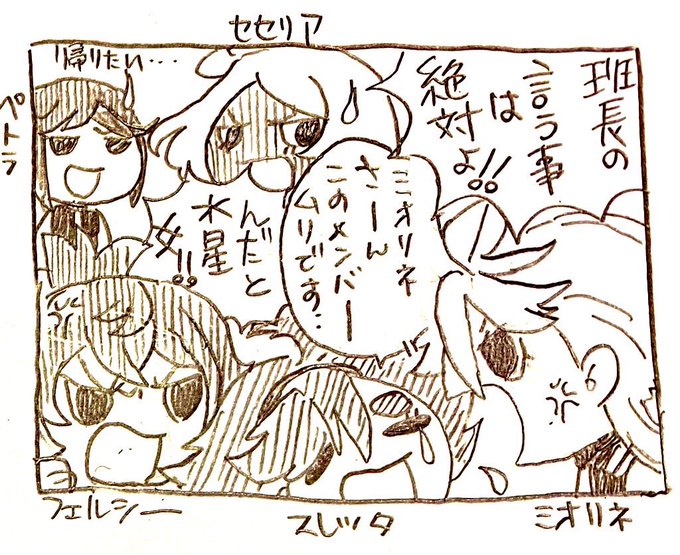 セセリア
ペトラ
帰りたい…
班長の
言う事
は
絶対よ!!
ミオリネ
さーん
このメンバー
ムリです…
んだと
水星
女!!
フェルシー
スレッタ
ミオリネ